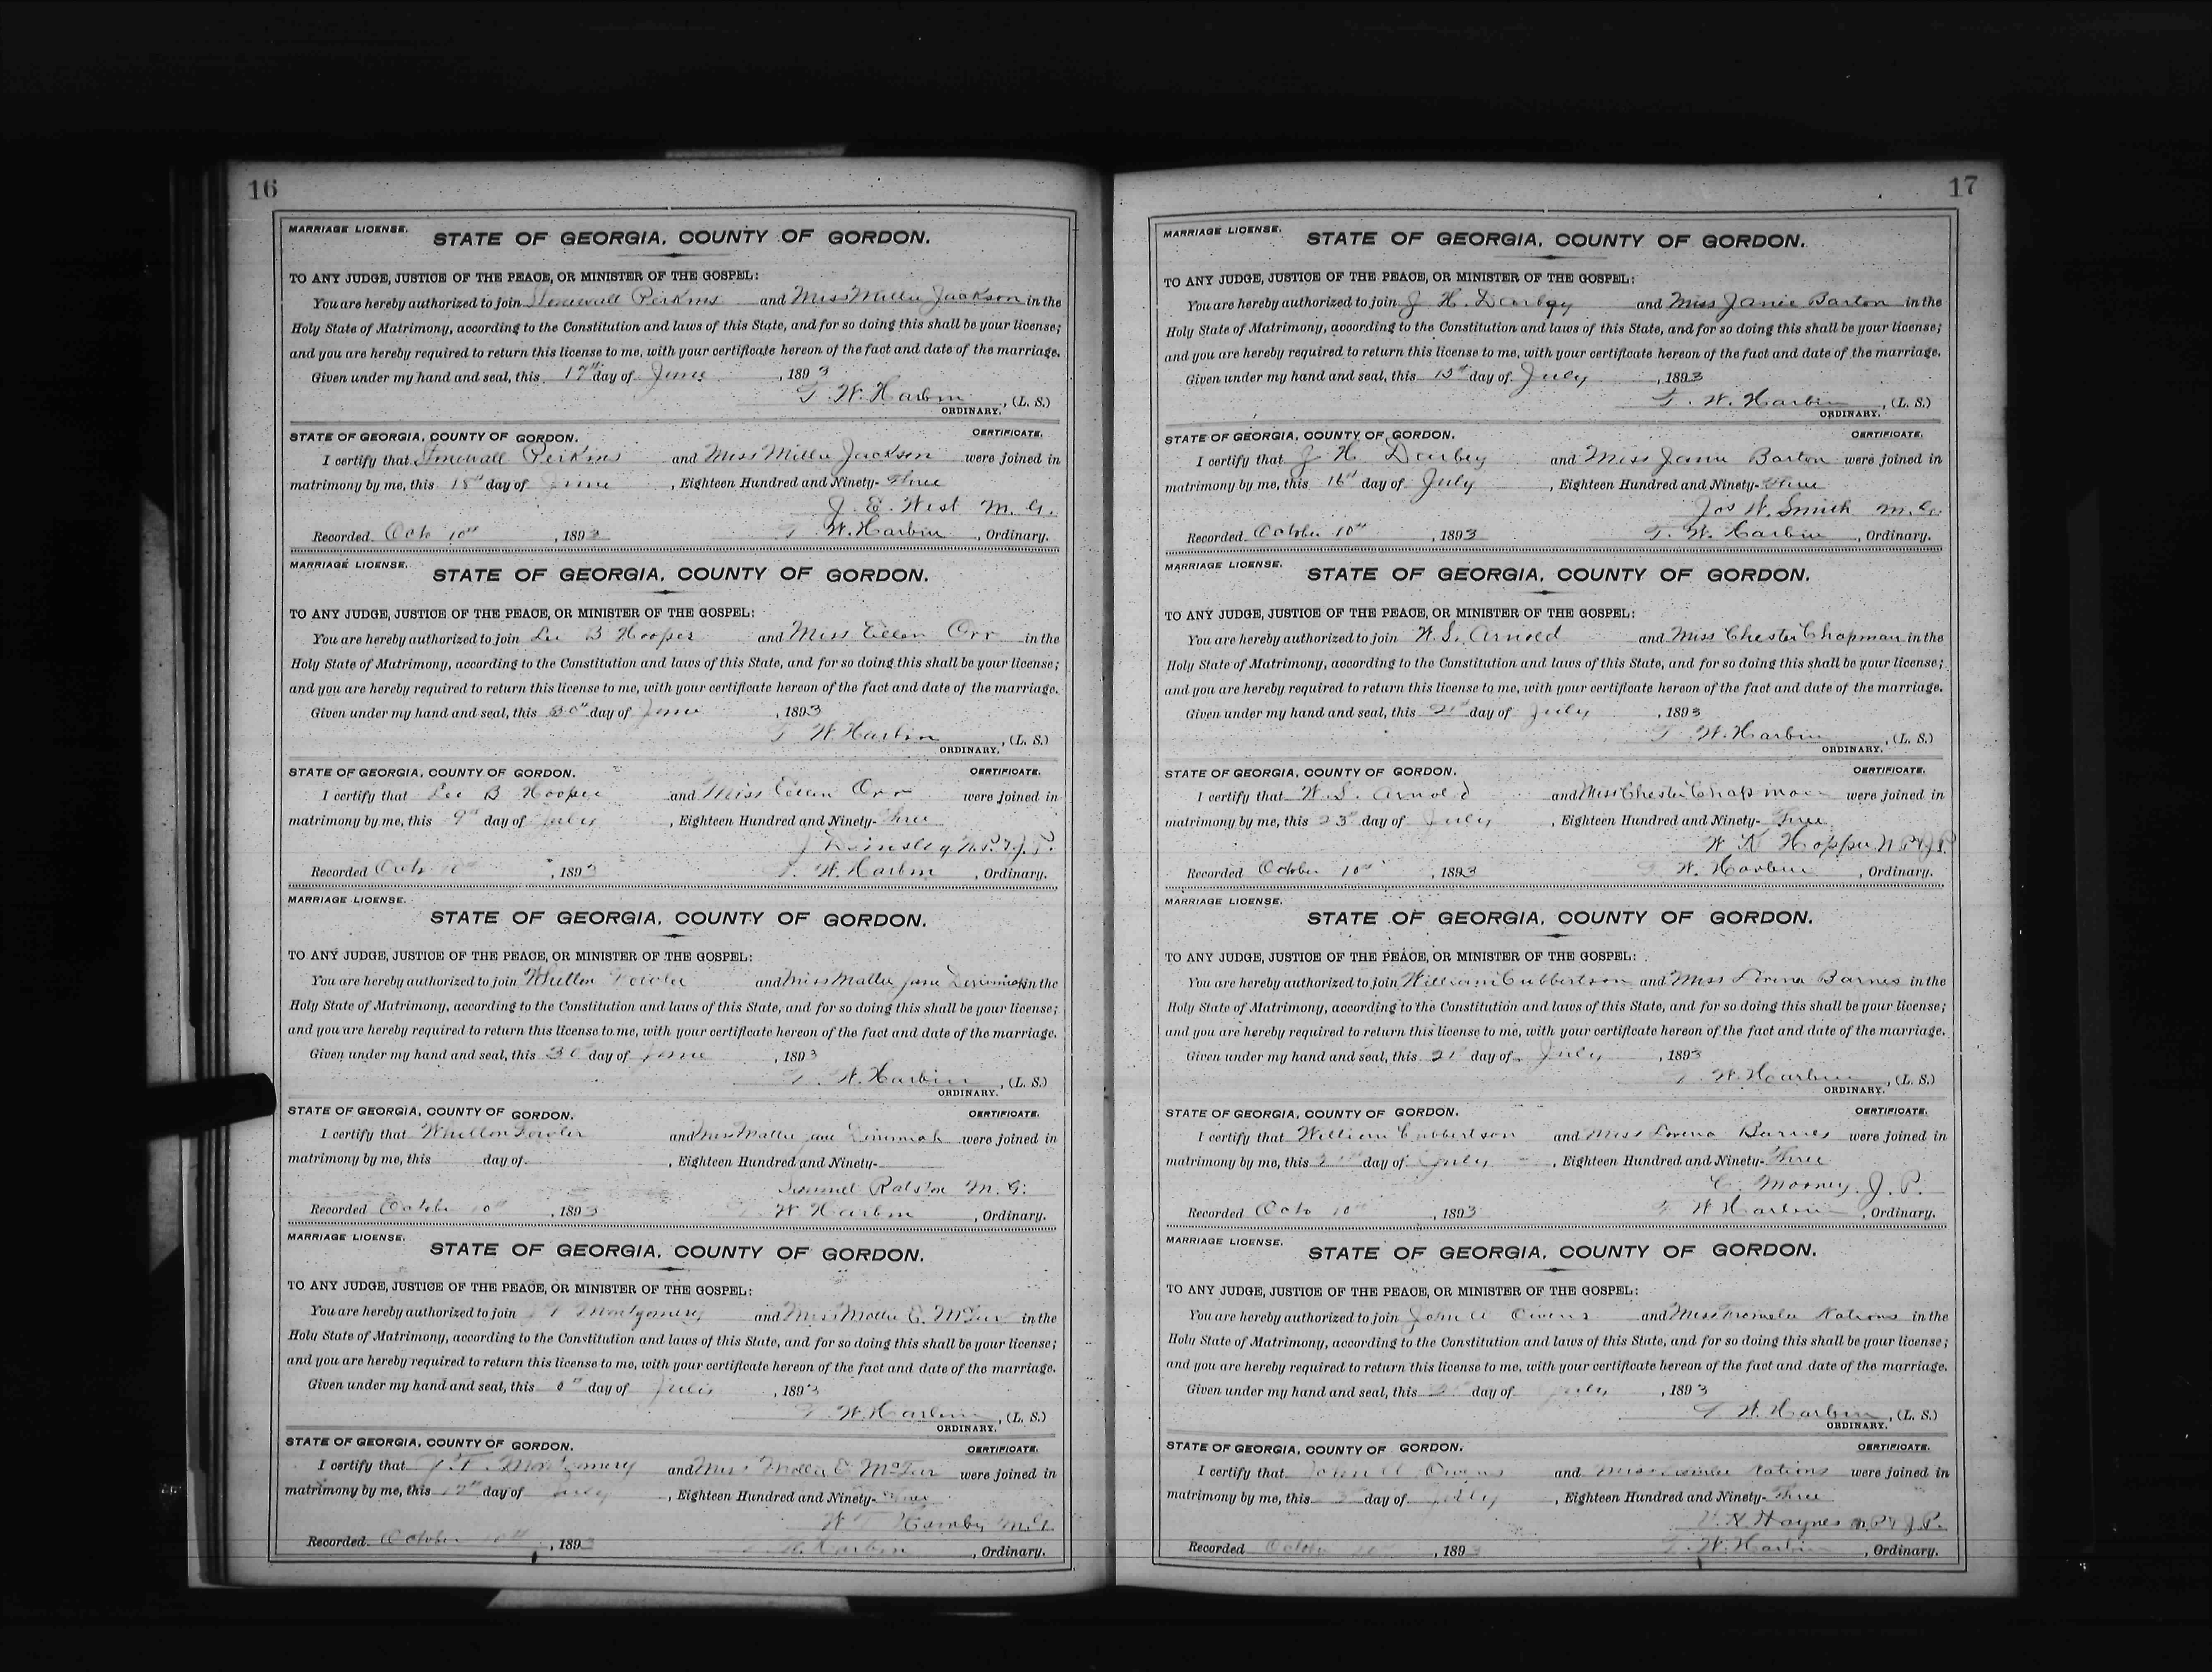 16
MARRIAGE LICENSE.
STATE OF GEORGIA, COUNTY OF GORDON.
TO ANY JUDGE, JUSTICE OF THE PEACE, OR MINISTER OF THE GOSPEL:
You are hereby authorized to join Stonewall Perkins and Miss Millie Jackson in the
Holy State of Matrimony, according to the Constitution and laws of this State, and for so doing this shall be your license;
and you are hereby required to return this license to me, with your certificate hereon of the fact and date of the marriage.
Given under my hand and seal, this 17th day of June, 1893
W. Harbin, (L. S.)
ORDINARY.
STATE OF GEORGIA, COUNTY OF GORDON. CERTIFICATE.
I certify that Stonewall Perkins and Miss Millie Jackson were joined in
matrimony by me, this 18th day of June, Eighteen Hundred and Ninety-Three
J. E. West M. G.
Recorded Octo 10th, 1893 W. Harbin, Ordinary.
MARRIAGE LICENSE.
STATE OF GEORGIA, COUNTY OF GORDON.
TO ANY JUDGE, JUSTICE OF THE PEACE, OR MINISTER OF THE GOSPEL:
You are hereby authorized to join Lee B Hooper and Miss Ellen Orr in the
Holy State of Matrimony, according to the Constitution and laws of this State, and for so doing this shall be your license;
and you are hereby required to return this license to me, with your certificate hereon of the fact and date of the marriage.
Given under my hand and seal, this 30th day of June, 1893
W. Harbin, (L. S.)
ORDINARY.
STATE OF GEORGIA, COUNTY OF GORDON. CERTIFICATE.
I certify that Lee B Hooper and Miss Ellen Orr were joined in
matrimony by me, this 9th day of July, Eighteen Hundred and Ninety-Three
N.P. & J.P.
Recorded Octo 10th, 1893 W. Harbin, Ordinary.
MARRIAGE LICENSE.
STATE OF GEORGIA, COUNTY OF GORDON.
TO ANY JUDGE, JUSTICE OF THE PEACE, OR MINISTER OF THE GOSPEL:
You are hereby authorized to join Fowler and Miss Mattie Jane in the
Holy State of Matrimony, according to the Constitution and laws of this State, and for so doing this shall be your license;
and you are hereby required to return this license to me, with your certificate hereon of the fact and date of the marriage.
Given under my hand and seal, this 30 day of June, 1893
W. Harbin, (L. S.)
ORDINARY.
STATE OF GEORGIA, COUNTY OF GORDON. CERTIFICATE.
I certify that Fowler and Miss Mattie Jane were joined in
matrimony by me, this day of , Eighteen Hundred and Ninety-
Samuel Ralston M. G.
Recorded October 10th, 1893 W. Harbin, Ordinary.
MARRIAGE LICENSE.
STATE OF GEORGIA, COUNTY OF GORDON.
TO ANY JUDGE, JUSTICE OF THE PEACE, OR MINISTER OF THE GOSPEL:
You are hereby authorized to join J F Montgomery and Miss Mollie E. in the
Holy State of Matrimony, according to the Constitution and laws of this State, and for so doing this shall be your license;
and you are hereby required to return this license to me, with your certificate hereon of the fact and date of the marriage.
Given under my hand and seal, this day of July, 1893
W. Harbin, (L. S.)
ORDINARY.
STATE OF GEORGIA, COUNTY OF GORDON. CERTIFICATE.
I certify that J. F. Montgomery and Miss Mollie E were joined in
matrimony by me, this day of July, Eighteen Hundred and Ninety-Three
W Hamby M.G.
Recorded October 10th, 1893 W. Harbin, Ordinary.
17
MARRIAGE LICENSE.
STATE OF GEORGIA, COUNTY OF GORDON.
TO ANY JUDGE, JUSTICE OF THE PEACE, OR MINISTER OF THE GOSPEL:
You are hereby authorized to join J H. Darby and Miss Janie Barton in the
Holy State of Matrimony, according to the Constitution and laws of this State, and for so doing this shall be your license;
and you are hereby required to return this license to me, with your certificate hereon of the fact and date of the marriage.
Given under my hand and seal, this day of July, 1893
W. Harbin, (L. S.)
ORDINARY.
STATE OF GEORGIA, COUNTY OF GORDON. CERTIFICATE.
I certify that J H Darby and Miss Janie Barton were joined in
matrimony by me, this 16th day of July, Eighteen Hundred and Ninety-Three
Jos W. Smith M. G.
Recorded October 10th, 1893 W. Harbin, Ordinary.
MARRIAGE LICENSE.
STATE OF GEORGIA, COUNTY OF GORDON.
TO ANY JUDGE, JUSTICE OF THE PEACE, OR MINISTER OF THE GOSPEL:
You are hereby authorized to join W. S. Arnold and Miss Chester Chapman in the
Holy State of Matrimony, according to the Constitution and laws of this State, and for so doing this shall be your license;
and you are hereby required to return this license to me, with your certificate hereon of the fact and date of the marriage.
Given under my hand and seal, this 21st day of July, 1893
W. Harbin, (L. S.)
ORDINARY.
STATE OF GEORGIA, COUNTY OF GORDON. CERTIFICATE.
I certify that W. S. Arnold and Miss Chester Chapman were joined in
matrimony by me, this 23d day of July, Eighteen Hundred and Ninety-Three
W K Hopper N P & J P.
Recorded October 10th, 1893 W. Harbin, Ordinary.
MARRIAGE LICENSE.
STATE OF GEORGIA, COUNTY OF GORDON.
TO ANY JUDGE, JUSTICE OF THE PEACE, OR MINISTER OF THE GOSPEL:
You are hereby authorized to join William Cubbertson and Miss Lorena Barnes in the
Holy State of Matrimony, according to the Constitution and laws of this State, and for so doing this shall be your license;
and you are hereby required to return this license to me, with your certificate hereon of the fact and date of the marriage.
Given under my hand and seal, this 21 day of July, 1893
W. Harbin, (L. S.)
ORDINARY.
STATE OF GEORGIA, COUNTY OF GORDON. CERTIFICATE.
I certify that William Cubbertson and Miss Lorena Barnes were joined in
matrimony by me, this day of July, Eighteen Hundred and Ninety-Three
C. Mooney. J. P.
Recorded Octo 10th, 1893 W Harbin, Ordinary.
MARRIAGE LICENSE.
STATE OF GEORGIA, COUNTY OF GORDON.
TO ANY JUDGE, JUSTICE OF THE PEACE, OR MINISTER OF THE GOSPEL:
You are hereby authorized to join John A Owens and Miss Nations in the
Holy State of Matrimony, according to the Constitution and laws of this State, and for so doing this shall be your license;
and you are hereby required to return this license to me, with your certificate hereon of the fact and date of the marriage.
Given under my hand and seal, this day of July, 1893
W. Harbin, (L. S.)
ORDINARY.
STATE OF GEORGIA, COUNTY OF GORDON. CERTIFICATE.
I certify that John A Owens and Miss Nations were joined in
matrimony by me, this day of July, Eighteen Hundred and Ninety-Three
Haynes N.P & J.P.
Recorded October, 1893 W. Harbin, Ordinary.